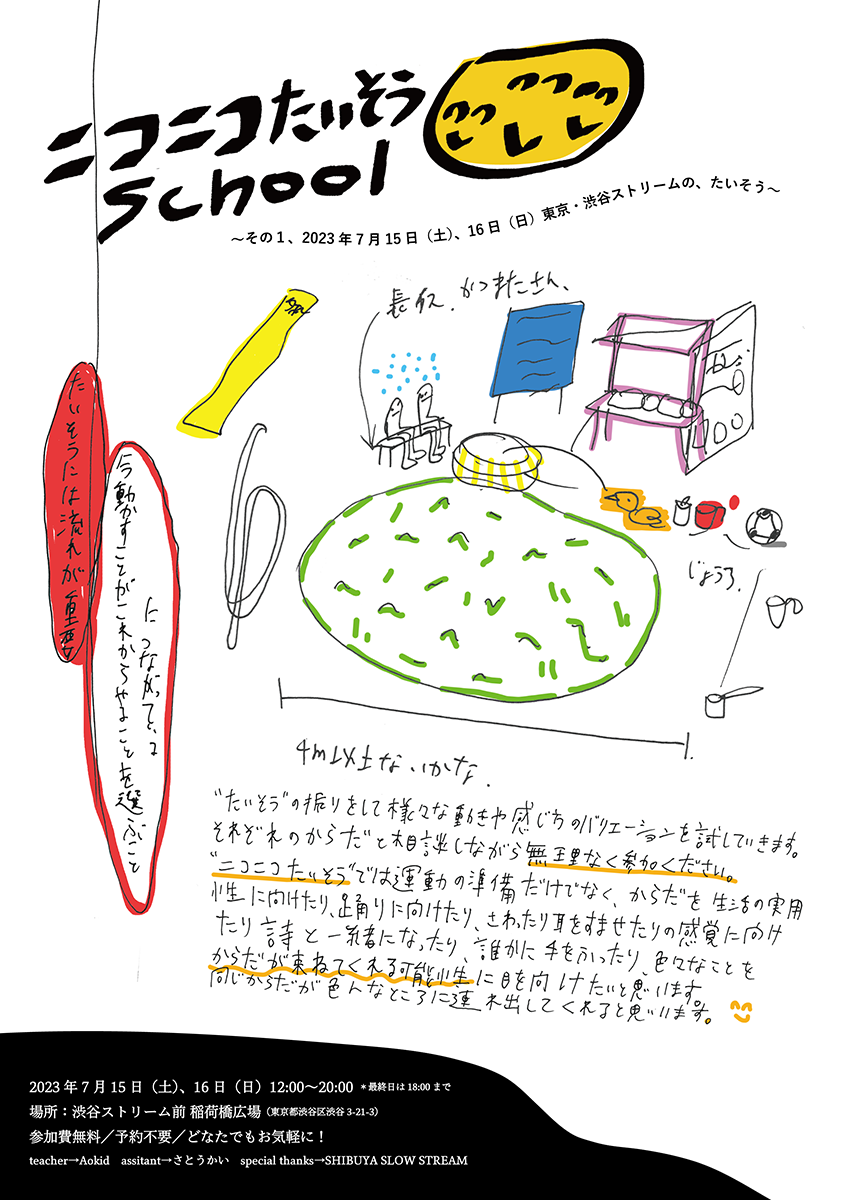 ニコニコたいそう
School
～その1、2023年7月15日（土）、16日（日）東京・渋谷ストリームの、たいそう～
長作、かつまたさん、
たいそうには流れが重要
今動かすことがこれからやることを選ぶこと
につながっている
じょうろ、
4m以上ないかな、
"たいそう"の振りをして様々な動きや感じ方のバリエーションを試していきます。
それぞれのからだと相談しながら無理なく参加ください。
"ニコニコたいそう"では運動の準備だけでなく、からだを生活の実用
性に向けたり、踊りに向けたり、さわったり耳をすませたりの感覚に向け
たり詩と一緒になったり、誰かに手をふったり、色々なことを
からだが束ねてくれる可能性に目を向けたいと思います。
同じからだが色んなところに連れ出してくれると思います。
2023年7月15日（土）、16日（日）12:00～20:00 ＊最終日は18:00まで
場所：渋谷ストリーム前 稲荷橋広場（東京都渋谷区渋谷3-21-3）
参加費無料／予約不要／どなたでもお気軽に！
teacher→Aokid assitant→さとうかい special thanks→SHIBUYA SLOW STREAM